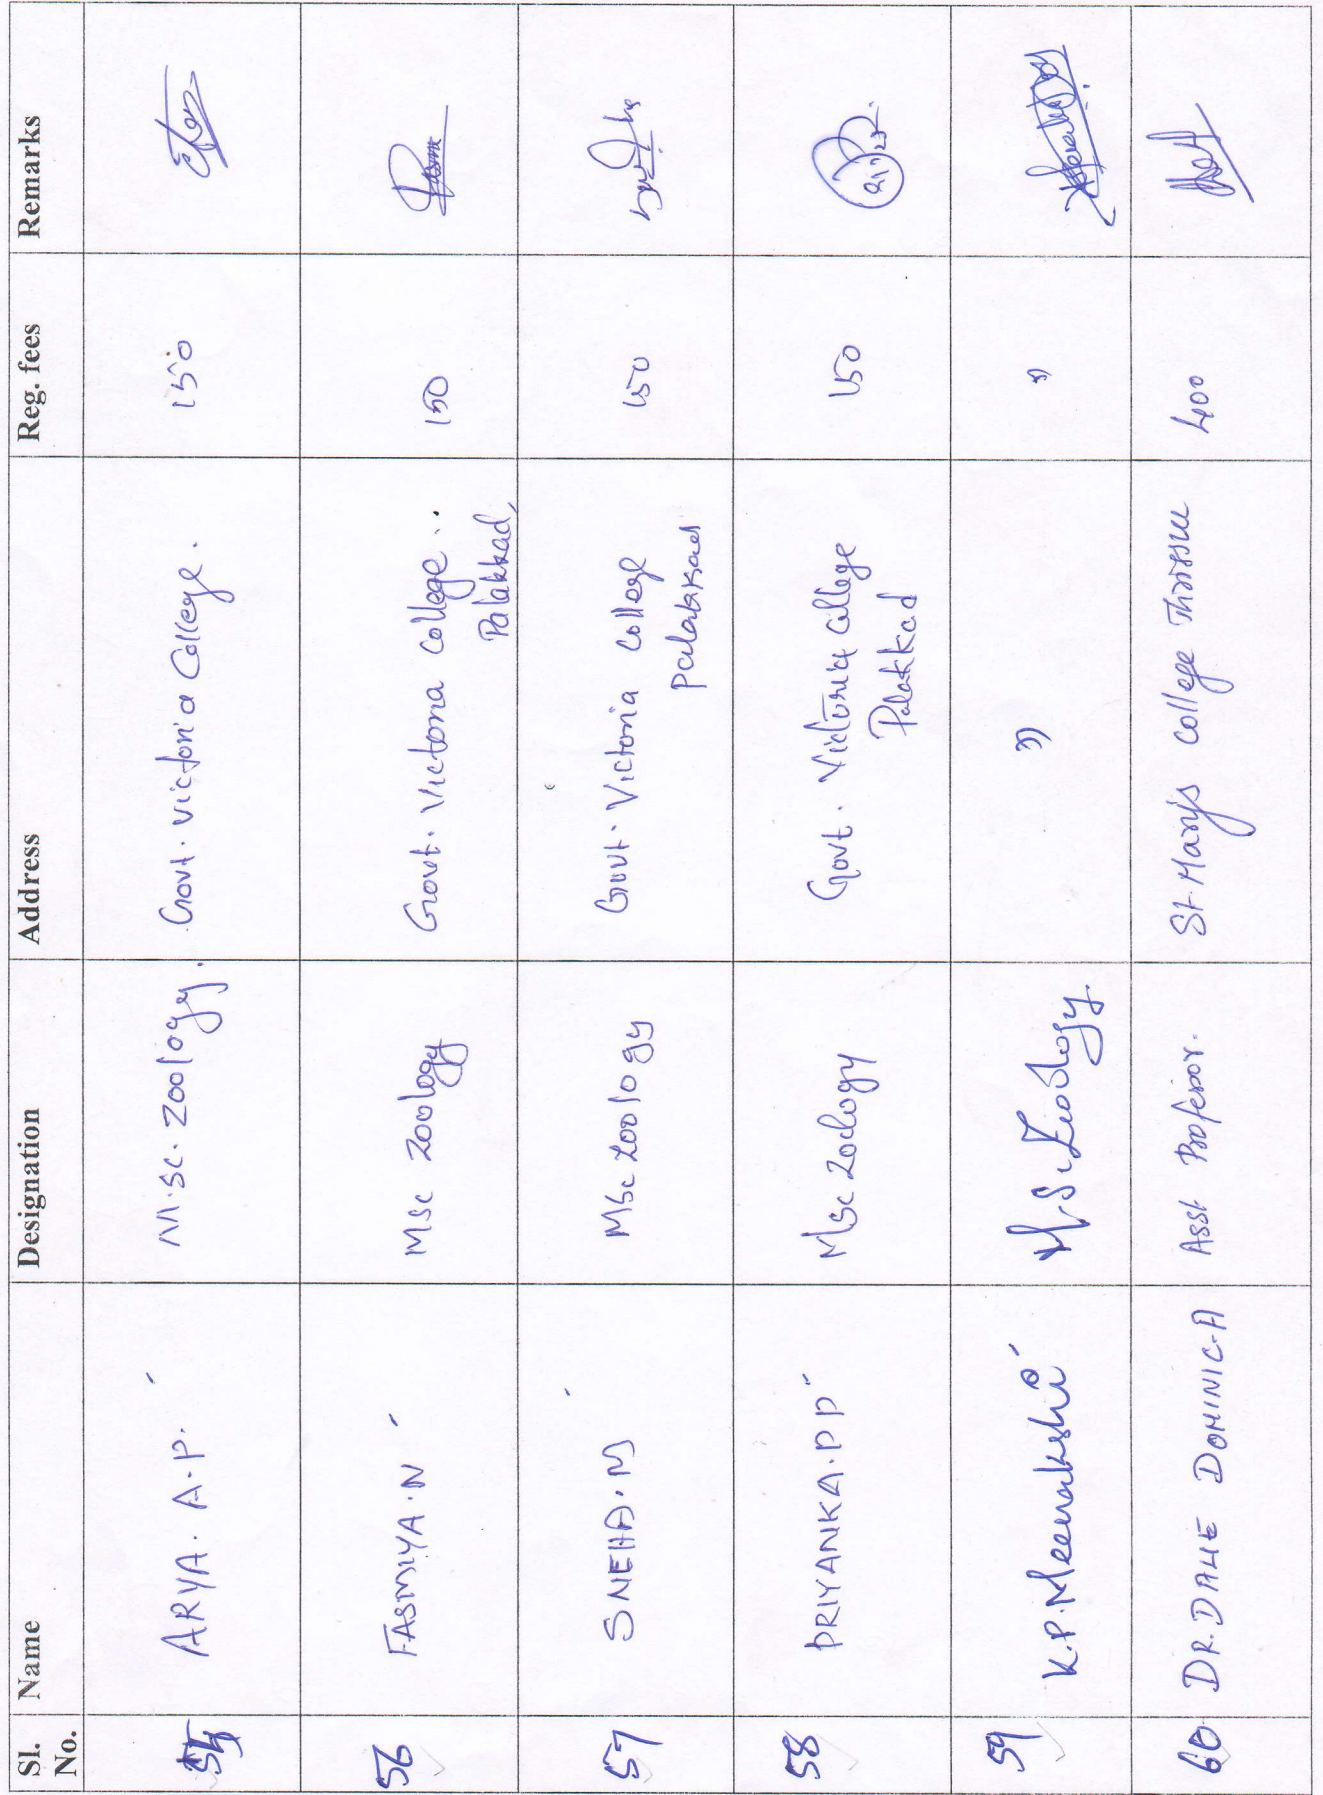 Sl. No. Name Designation Address Reg. fees Remarks
55 ARYA. A.P. M.SC. Zoology. Govt. Victoria College. 150
56 FASMIYA.N Msc Zoology Govt. Victoria college.. 150
Palakkad,
57 SNEHA.M MSc Zoology Govt. Victoria College 150
Palakkad
58 PRIYANKA.P P Msc Zoology Govt. Victoria College 150
Palakkad
59 K.P. Meenakshi M.Sc Zoology. " "
60 DR. DALIE DOMINIC.A Asst Professor. St. Mary's College Thrissur 400